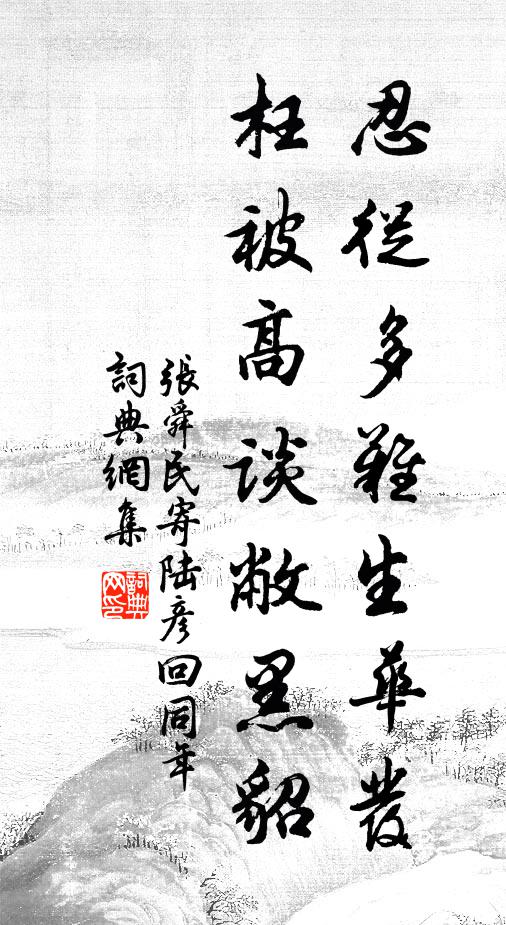 忍從多難生華髮
枉被高談敝黑貂
張舜民寄陸彥回同年
詞典網集
詞典網印